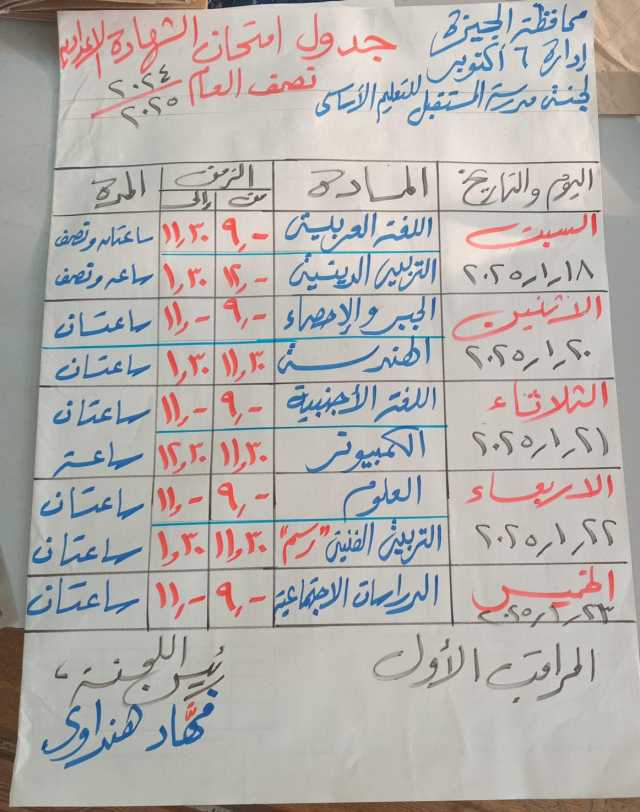 محافظة الجيزة
إدارة ٦ أكتوبر
لجنة مدرسة المستقبل للتعليم الأساسى
جدول امتحان الشهادة الإعدادية
نصف العام ٢٠٢٤/٢٠٢٥
اليوم والتاريخ المادة الزمن من إلى المدة
السبت ٢٠٢٥/١/١٨ اللغة العربية ٩,- ١١,٣٠ ساعتان ونصف
التربية الدينية ١٢,- ١,٣٠ ساعة ونصف
الاثنين ٢٠٢٥/١/٢٠ الجبر والإحصاء ٩,- ١١,- ساعتان
الهندسة ١١,٣٠ ١,٣٠ ساعتان
الثلاثاء ٢٠٢٥/١/٢١ اللغة الأجنبية ٩,- ١١,- ساعتان
الكمبيوتر ١١,٣٠ ١٢,٣٠ ساعة
الاربعاء ٢٠٢٥/١/٢٢ العلوم ٩,- ١١,- ساعتان
التربية الفنية "رسم" ١١,٣٠ ١,٣٠ ساعتان
الخميس ٢٠٢٥/١/٢٣ الدراسات الاجتماعية ٩,- ١١,- ساعتان
المراقب الأول رئيس اللجنة،
هنداوى